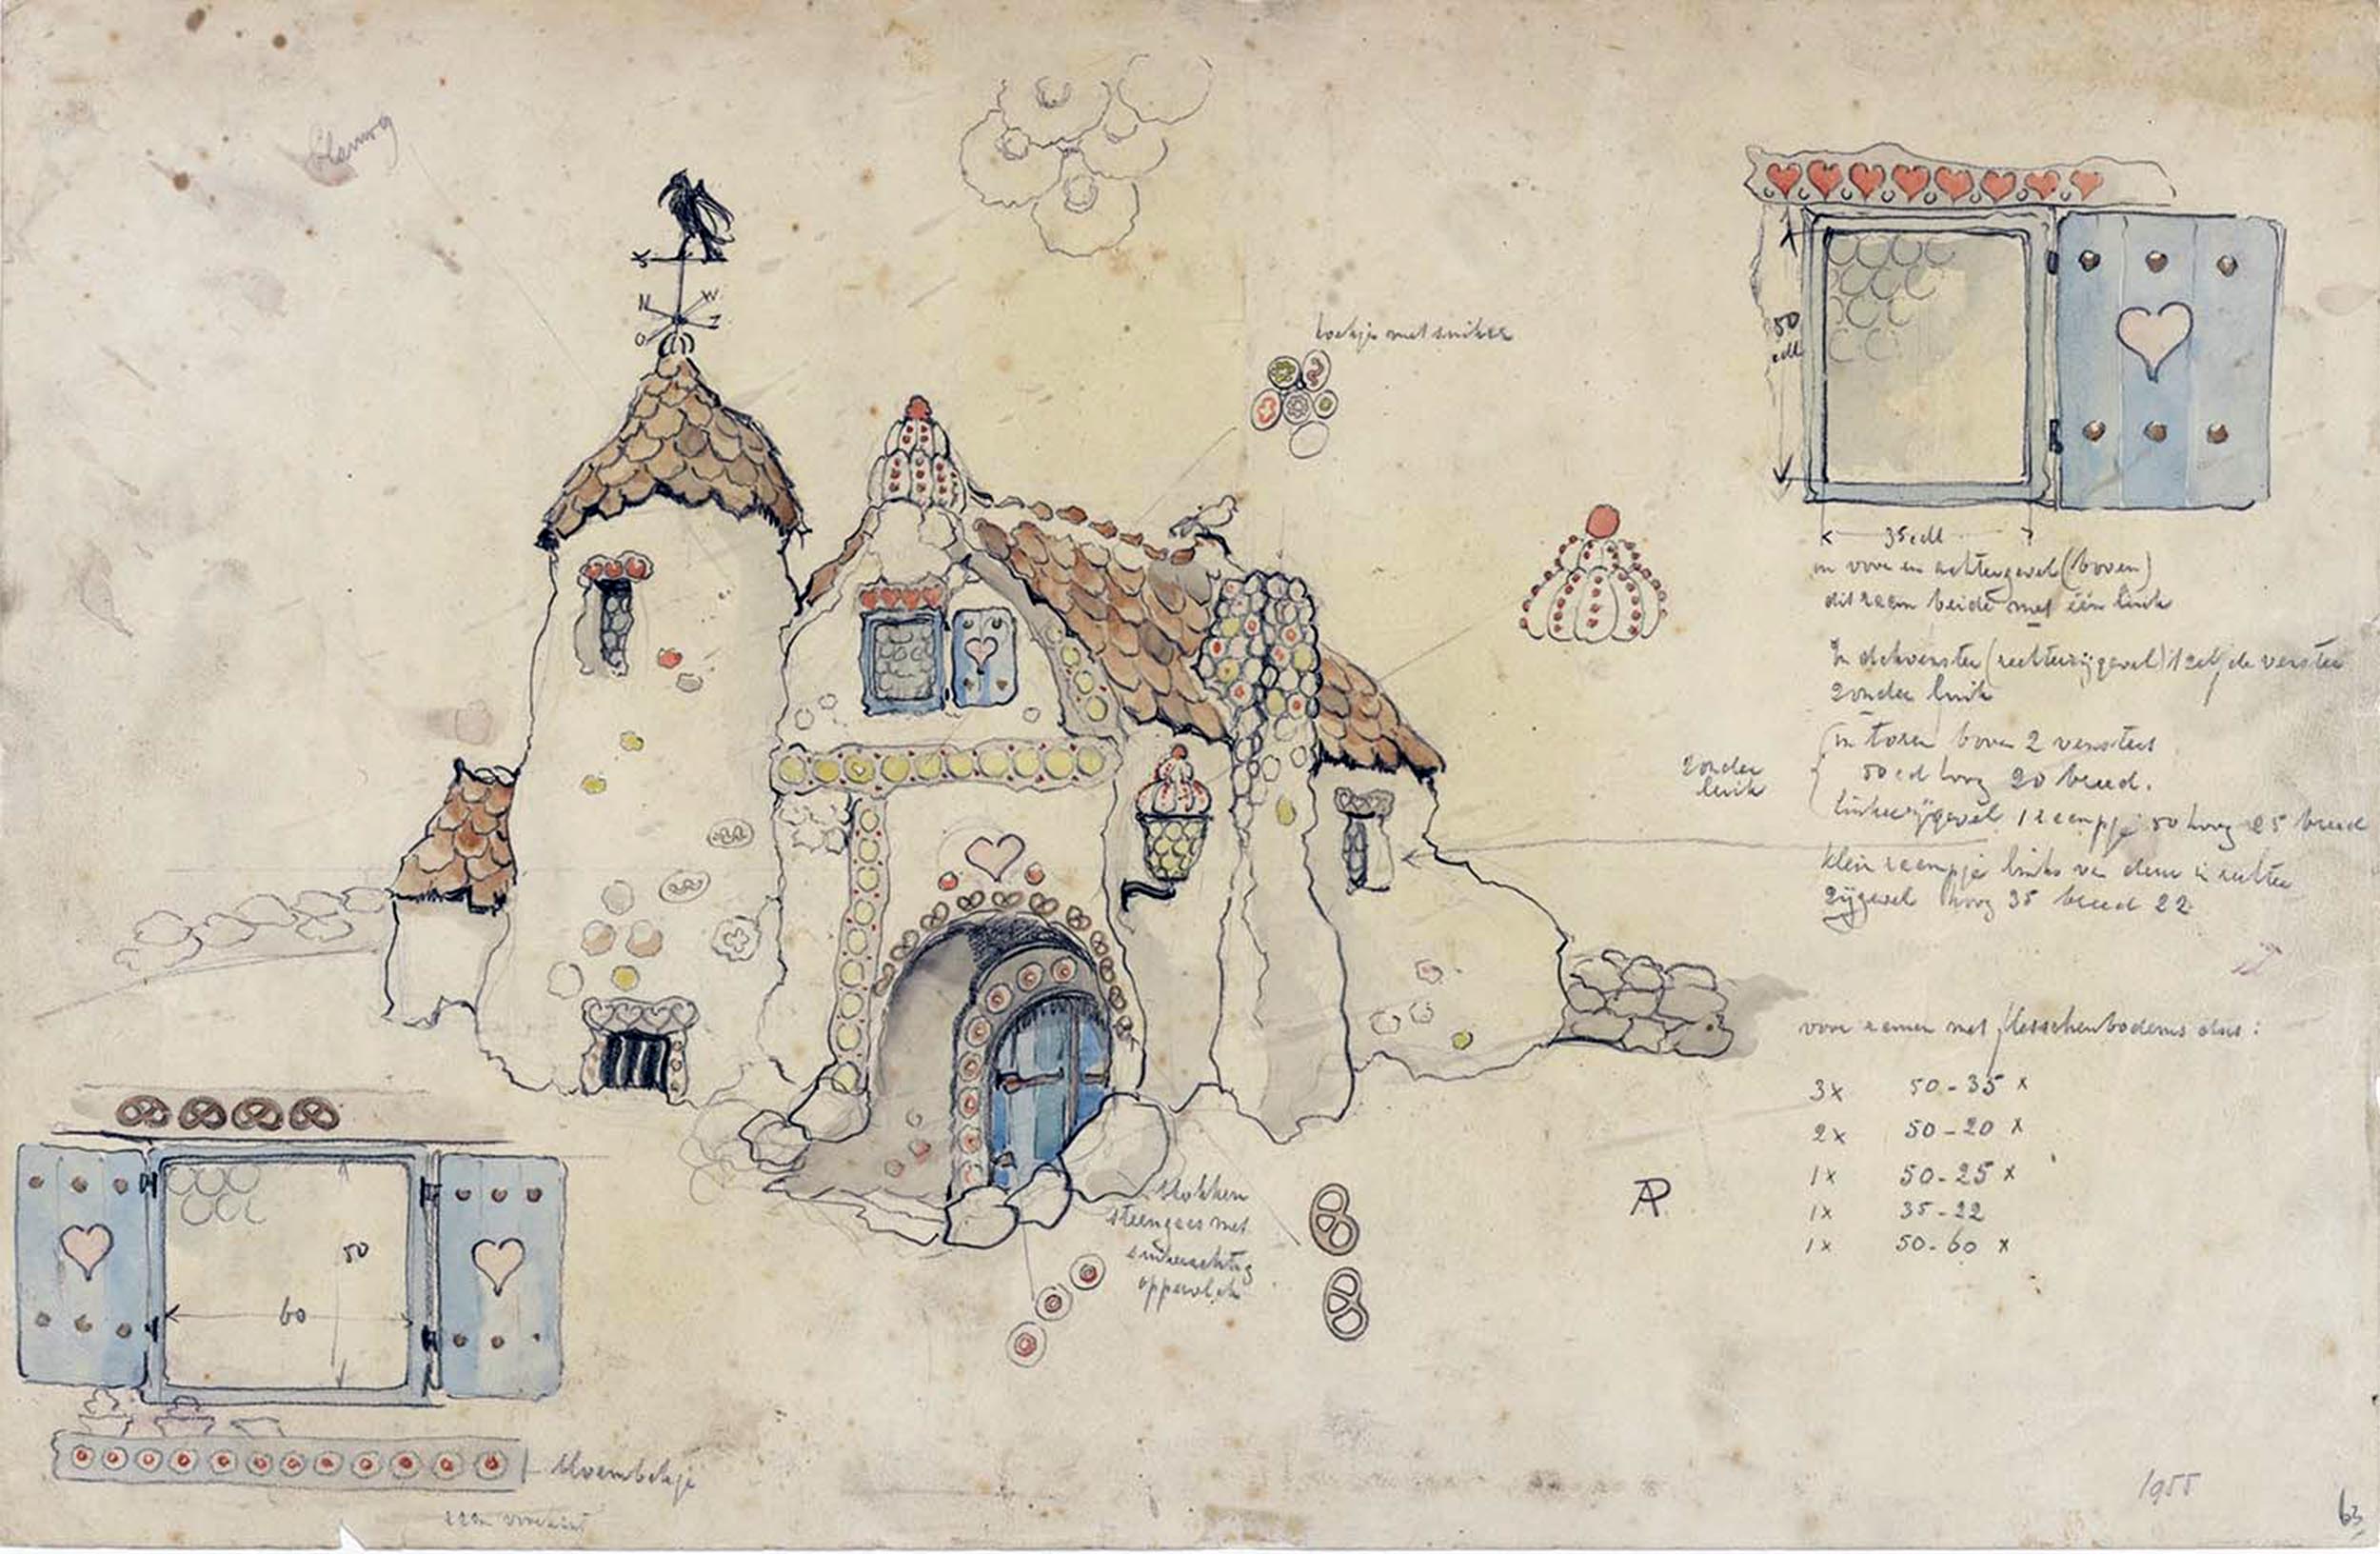 N W
O Z
50
cM
35 cM
in voor en achtergevel (boven)
dit raam beide met één luik
In dakvenster (rechterzijgevel) 1 zelfde venster
zonder luik
in toren boven 2 vensters
50 cM hoog 20 breed.
linkerzijgevel 1 raampje 50 hoog 25 breed
zonder
luik
klein raampje links van deur in rechter
zijgevel hoog 35 breed 22
voor ramen met flesschenbodems dus:
3x 50-35 x
2x 50-20 x
1x 50-25 x
1x 35-22
1x 50-60 x
koekjes met suiker
brokken
steengaas met
suikerachtig
oppervlak
AP
50
60
bloembakje
1955
63